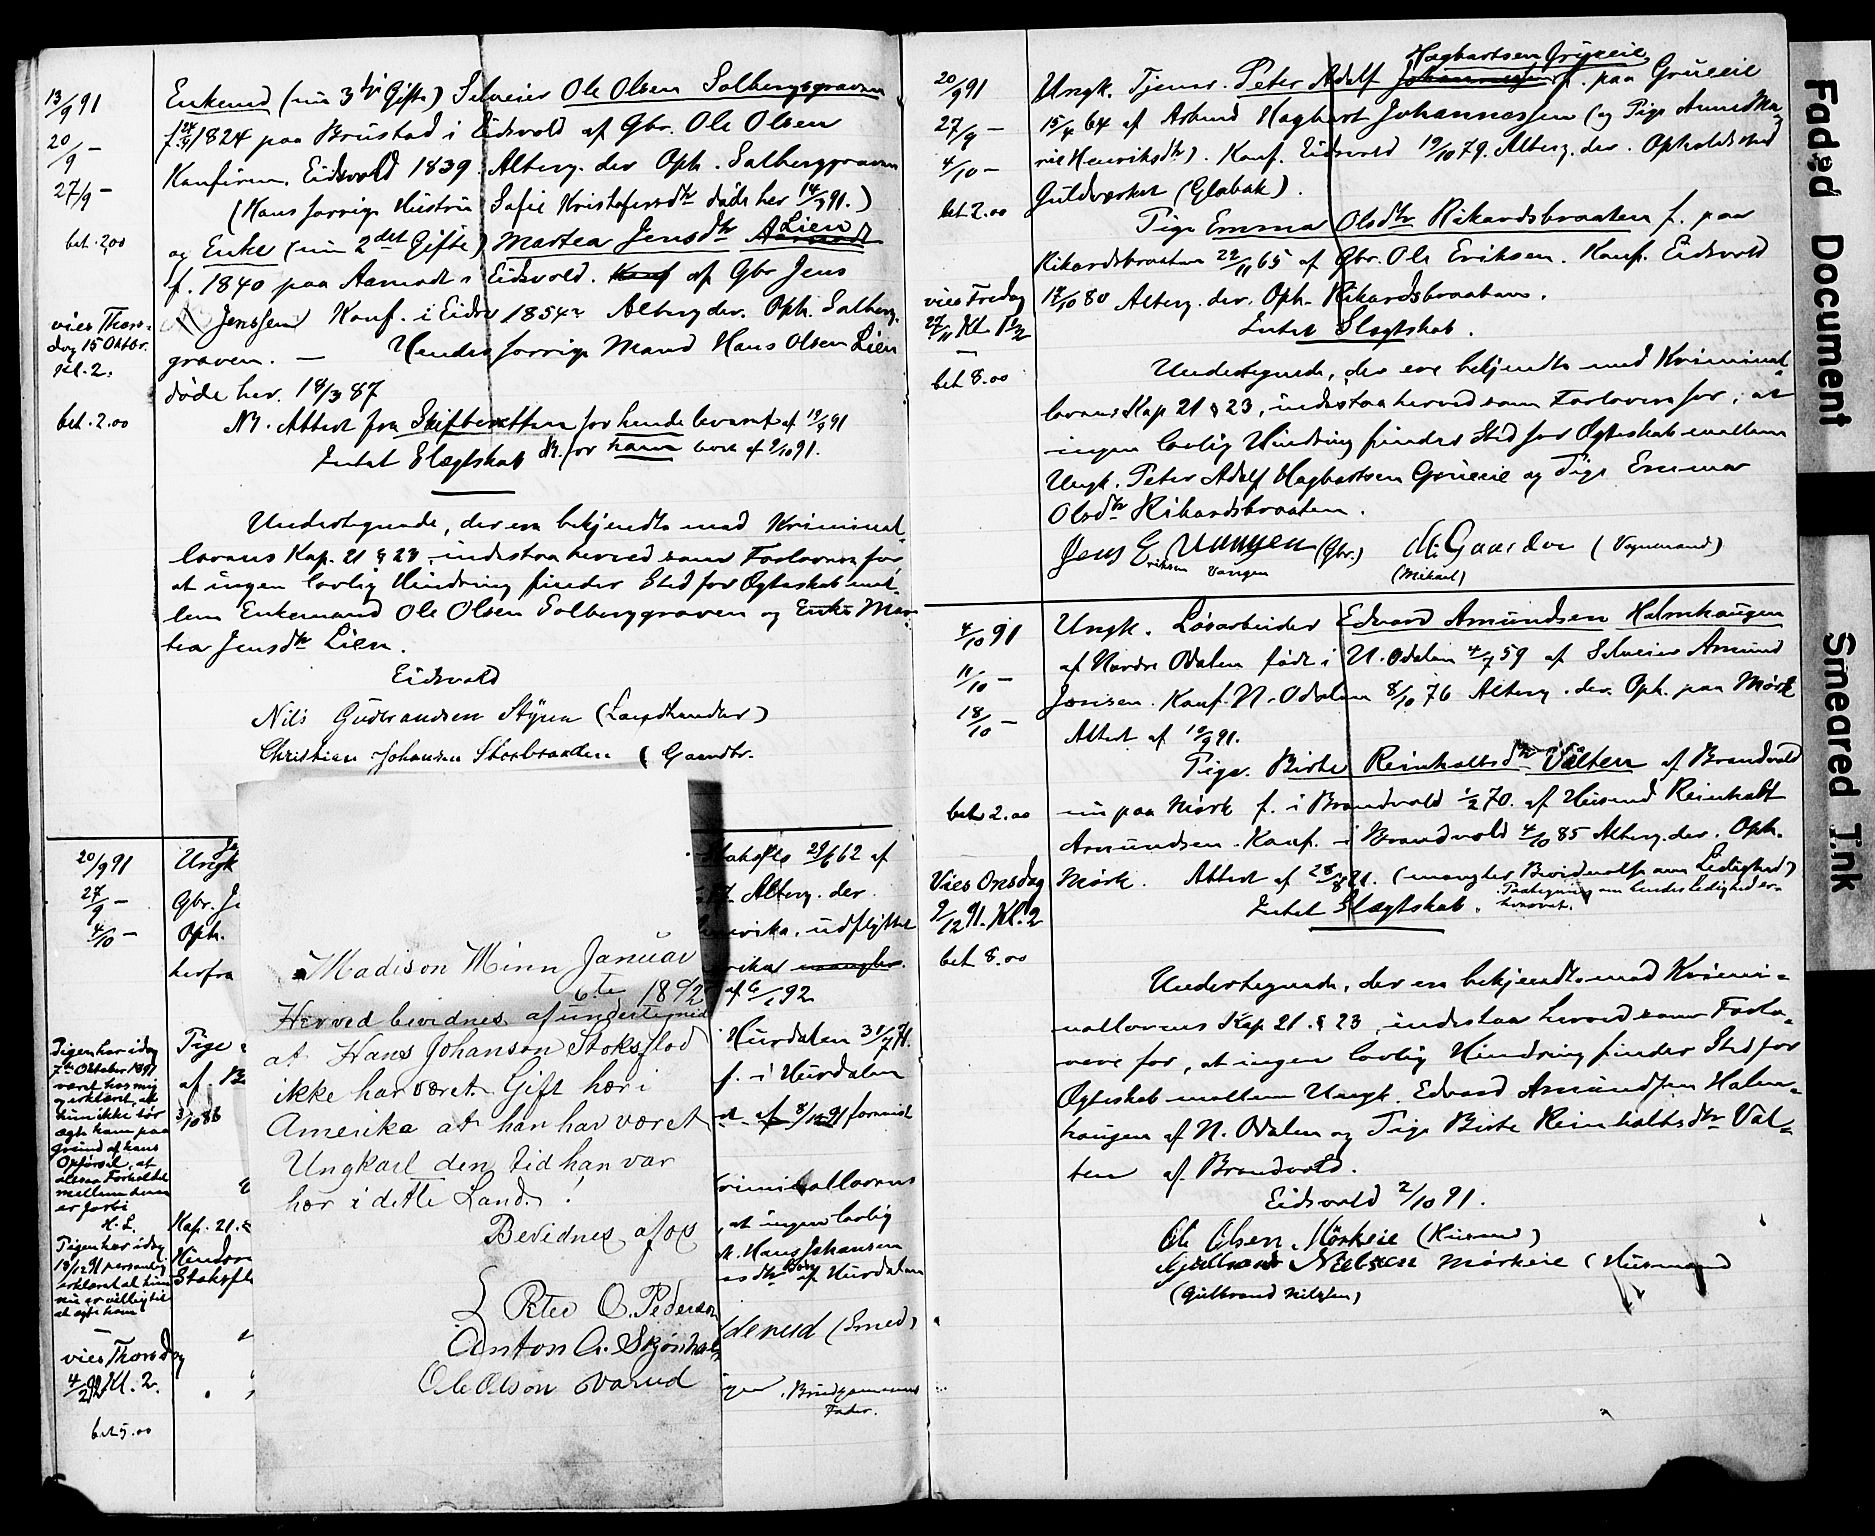 13/9 91
20/9 –
27/9 –
bet. 2,00
vies Thors-
dag 15 Oktbr.
Kl. 2.
bet. 2.00
Enkemd (nu 3die Gifte) Selveier Ole Olsen Solbergsgraven
f. 24/4 1824 paa Brustad i Eidsvold af Gbr. Ole Olsen
Konfirm. Eidsvold 1839. Alterg. der Oph. Solberggraven
(Hans forrige Hustru Sofie Kristofersdtr døde her 14/3 91.)
Lien
og Enke (nu 2det Gifte) Martea Jensdtr Aamodt
f. 1840 paa Aamodt i Eidsvold. Konf af Gbr Jens
Jenssen Konf. i Eidsv 1854 Alterg der. Oph. Solberg-
graven. — Hendes forrige Mand Hans Olsen Lien
døde her. 18/3 87
NB. Attest fra Skifteretten for hende leveret af 19/9 91
Intet Slægtskab NB. for ham lev. af 2/10 91.
Undertegnede, der ere bekjendte med Kriminal-
lovens Kap. 21 § 23, indestaa herved som Forlovere for,
at ingen lovlig Hindring finder Sted for Ægteskab mel-
lem Enkemand Ole Olsen Solberggraven og Enke Mar-
tea Jensdtr Lien.
Eidsvold
Nils Gudbrandsen Styren (Landhandler)
Christian Johansen Storbraaden (Gaardbr.
20/9 91
27/9 –
4/10 –
Pigen har idag
7de Oktober 1891
været hos mig
og erklært, at
hun ikke tør
ægte ham paa
Grund af hans
Opførsel, at
altsaa Forholdet
mellem dem
er forbi
H. L.
Pigen har idag
18/12 91 personlig
erklært at hun
nu er villig til
at ægte ham
vies Thorsdag
4/2 92 Kl. 2.
bet 5.00
Ungk
Gbr. J
Oph.
herfra
Pige
af B
3/10 86
Kap. 21. §
Hindr
Stoksfl
Madison Minn Januar
6te 1892
Herved bevidnes af undertegned
at Hans Johanson Stoksflod
ikke har været Gift her i
Amerika at han har været
Ungkarl den tid han var
her i dette Land.
Bevidnes af os
Peter O. Pederson
Anton A. Skjønhals
Ole Olson Varud
29/6 62 af
Alterg. der.
udflyttet
rika mangler.
af 6/1 92
Hurdalen 31/7 71.
f. i Hurdalen
af 3/10 91 forevist
riminallovens
, at ingen lovlig
Hans Johansen
af Hurdalen
denud (Smed)
Brudgommens
Fader.
20/9 91
27/9 –
4/10 –
bet 2.00
vies Fredag
27/11 Kl. 1 1/2
–
bet 8.00
Hagbartsen Grueeie
Ungk. Tjener. Peter Adolf Johannessen f. paa Grueeie
15/4 64 af Arbmd Hagbart Johannessen (og Pige Anne Ma-
rie Henriksdtr). Konf. Eidsvold 19/10 79. Alterg. der. Opholdssted
Guldverket (Globak).
Pige Emma Olsdtr Rikardsbraaten f. paa
Rikardsbraaten 22/11 65 af Gbr. Ole Eriksen. Konf. Eidsvold
17/10 80 Alterg. der. Oph. Rikardsbraaten.
Intet Slægtskab.
Undertegnede, der ere bekjendte med Kriminal-
lovens Kap 21 § 23, indestaa herved som Forlovere for, at
ingen lovlig Hindring finder Sted for Ægteskab mellem
Ungk. Peter Adolf Hagbartsen Grueeie og Pige Emma
Olsdtr Rikardsbraaten.
Jens E Vangen (Gbr.) M. Gaarder (Vognmand)
riksen Vangen (Mikael)
4/10 91
11/10 –
18/10 –
bet 2.00
Vies Onsdag
9/12 91. Kl. 2
bet 8.00
Ungk. Løsarbeider Edvard Amundsen Holmhaugen
af Nordre Odalen født i N. Odalen 4/7 59 af Selveier Amund
Jonsen. Konf. N. Odalen 8/10 76 Alterg. der. Oph. paa Mørk
Attest af 19/9 91.
Pige. Birte Reinholtsdtr Valten af Brandvold
nu paa Mørk f. i Brandvold 1/2 70. af Husmd Reinholt
Amundsen. Konf. i Brandvold 4/10 85 Alterg. der. Oph.
Mørk. Attest af 28/8 91. (mangler Bevidnelse om Ledighed)
Paategning om hendes Ledighed er
Intet Slægtskab.
Undertegnede, der ere bekjendte med Krimi-
nallovens Kap 21. § 23, indestaa herved som Forlo-
vere for, at ingen lovlig Hindring finder Sted for
Ægteskab mellem Ungk. Edvard Amundsen Holm-
haugen af N. Odalen og Pige Birte Reinholtsdtr Val-
ten af Brandvold.
Eidsvold 2/10 91.
Ole Olsen Mørkeie (Husmd)
Gulbrand Nielsen Mørkeie (Husmand
(Gulbrand Nilsen)
Faded Document
Smeared Ink